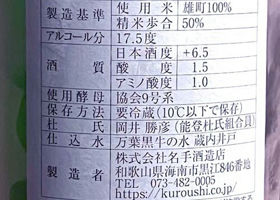 製造基準 使用米 雄町100%
精米歩合 50%
アルコール分 17.5度
酒質 日本酒度 +6.5
酸度 1.5
アミノ酸度 1.0
使用酵母 協会9号系
保存方法 要冷蔵(10℃以下で保存)
杜氏 岡井勝彦(能登杜氏組合員)
仕込水 万葉黒牛の水 蔵内井戸
製造者 株式会社名手酒造店
和歌山県海南市黒江846番地
TEL 073-482-0005
https://kuroushi.co.jp